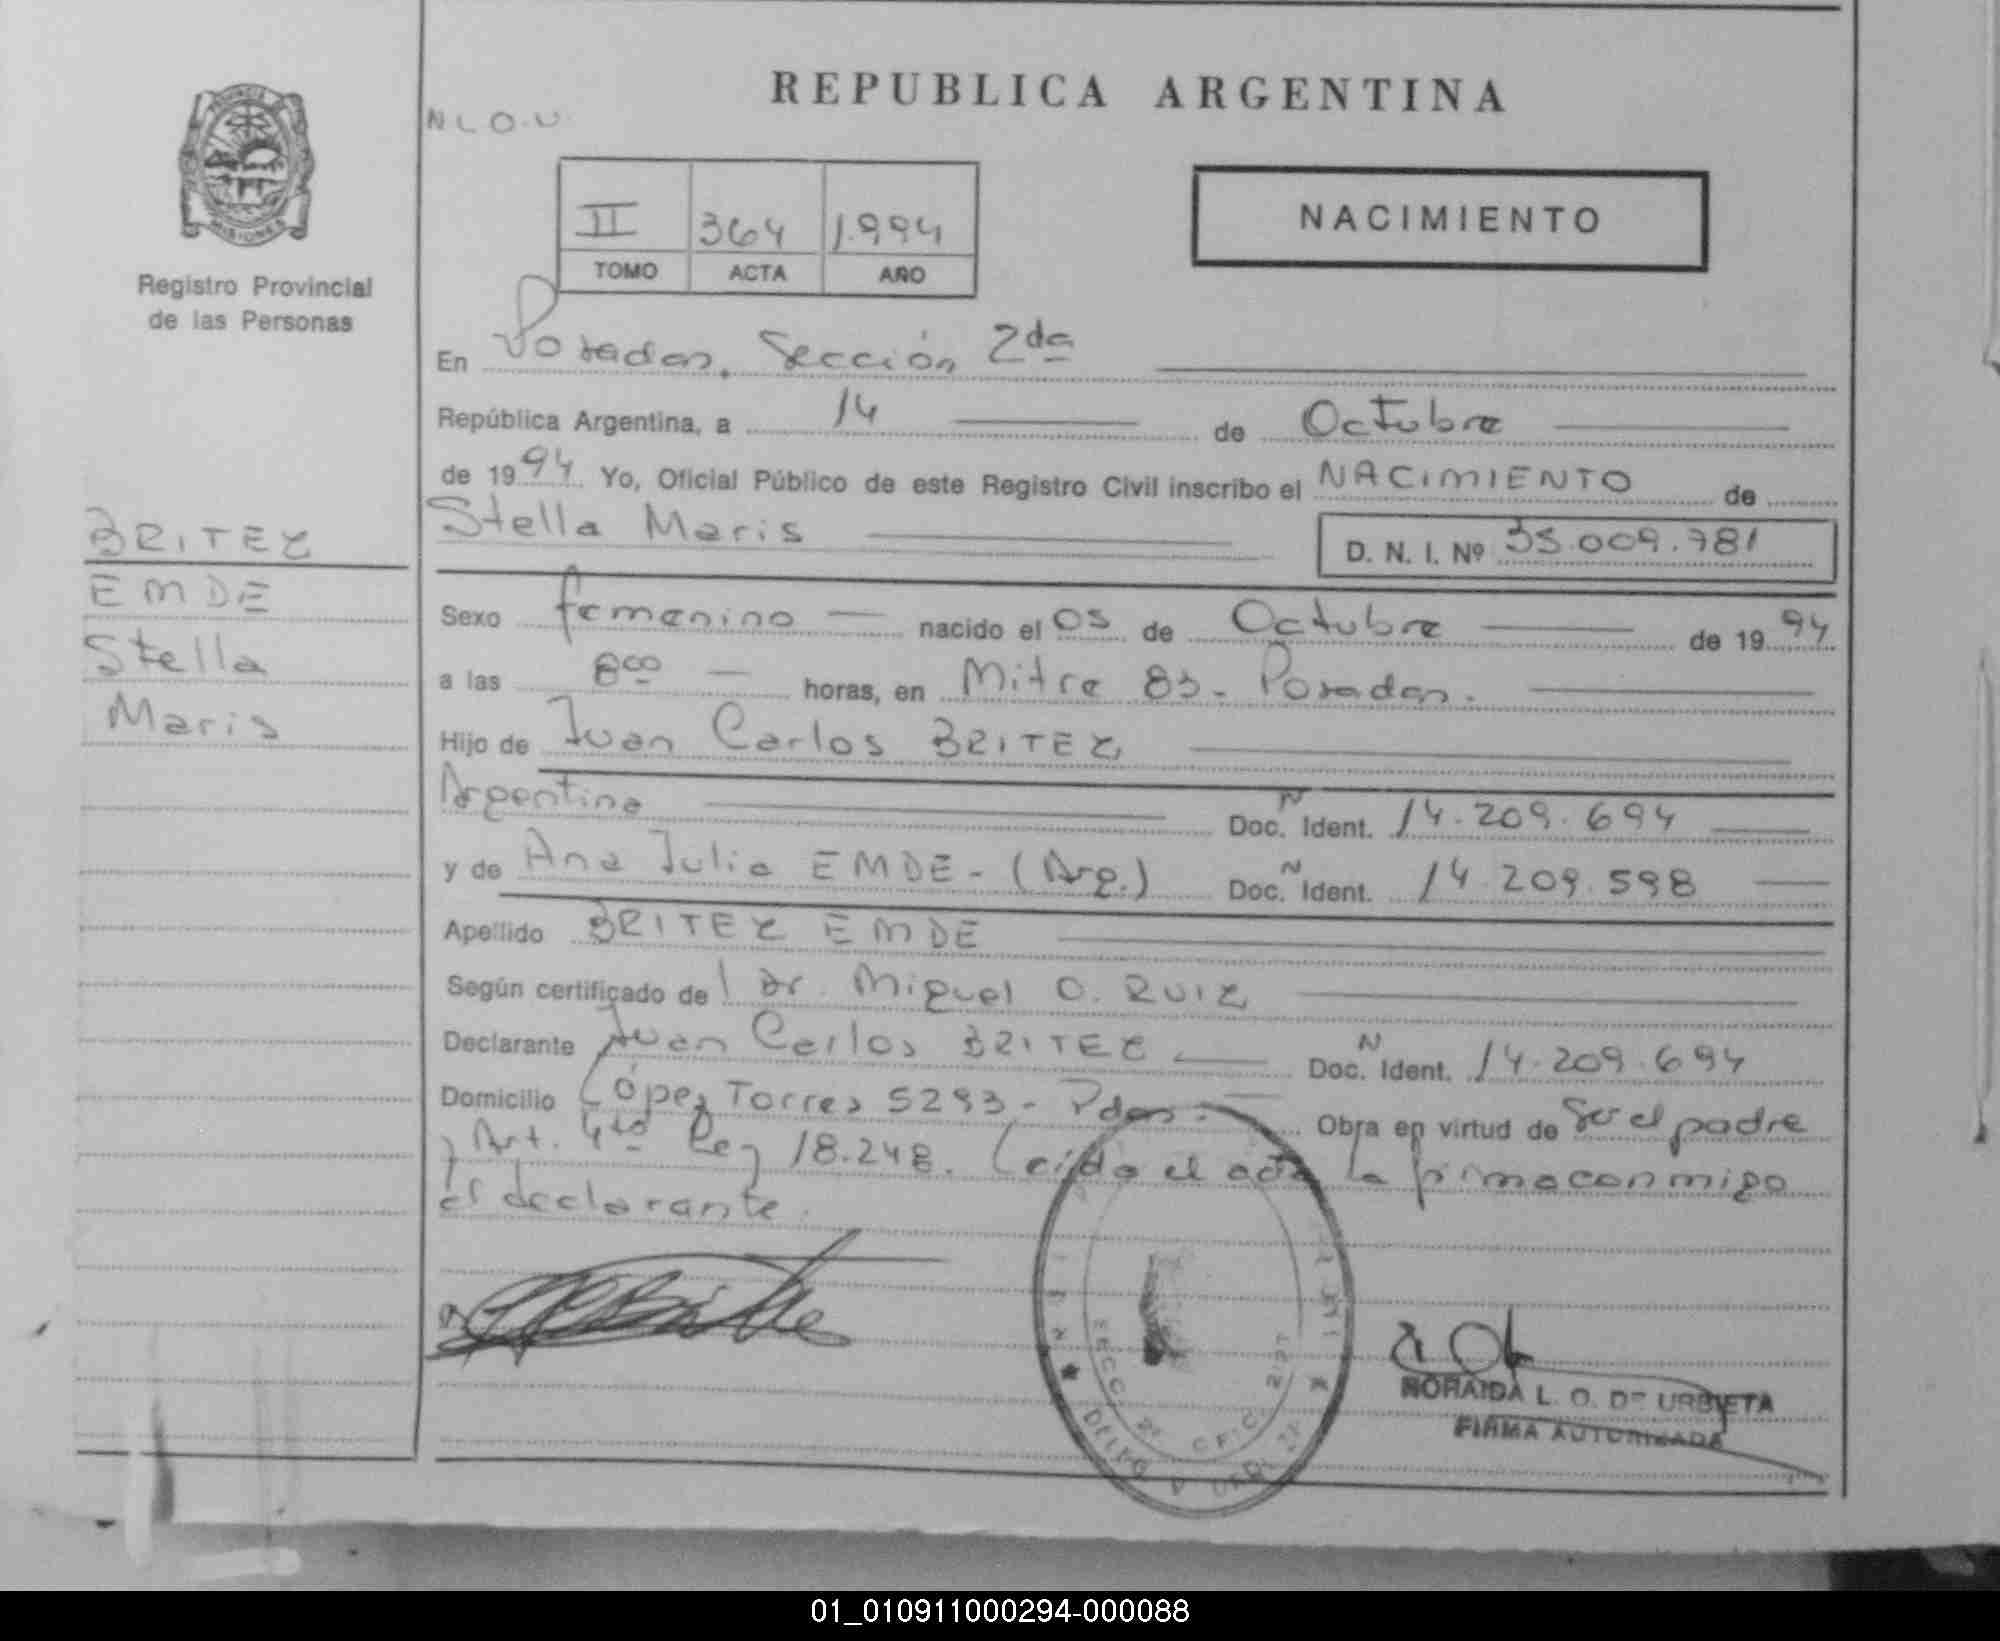 REPUBLICA ARGENTINA
N L O. U.
PROVINCIA DE
MISIONES
Registro Provincial
de las Personas
NACIMIENTO
II 364 1.994
TOMO ACTA AÑO
En Posadas. Sección 2da
República Argentina, a 14 de Octubre
de 1994 Yo, Oficial Público de este Registro Civil inscribo el NACIMIENTO de
Stella Maris
D. N. I. Nº 35.009.781
BRITEZ
EMDE
Stella
Maris
Sexo femenino nacido el 05 de Octubre de 1994
a las 8 00 horas, en Mitre 83 - Posadas.
Hijo de Juan Carlos BRITEZ
Argentina Doc. N Ident. 14.209.694
y de Ana Julia EMDE - (Arg.) Doc. N Ident. 14.209.598
Apellido BRITEZ EMDE
Según certificado de l Dr. Miguel O. RUIZ
Declarante Juan Carlos BRITEZ Doc. N Ident. 14.209.694
Domicilio López Torres 5293 - Pdas. Obra en virtud de Ser el padre
y Art. 4to Ley 18.248. Leída el acta la firma conmigo
el declarante.
NORAIDA L. O. DE URBIETA
FIRMA AUTORIZADA
01_010911000294-000088